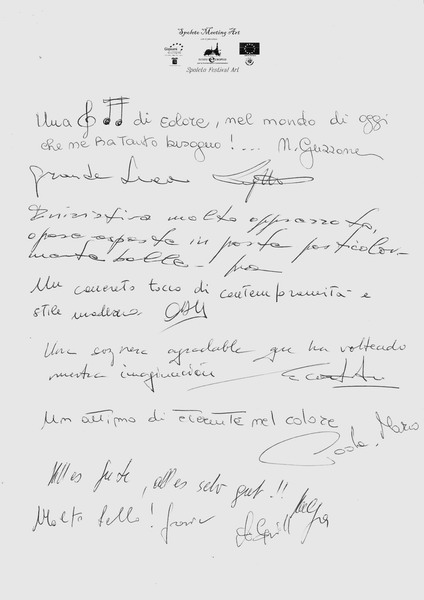 Spoleto Meeting Art
Spoleto Festival Art
Una di colore, nel mondo di oggi
che ne ha tanto bisogno! ... N. Guzzone
Grande Luca
Iniziativa molto apprezzata,
opere esposte in posta particolar-
mente belle -
Un concreto tocco di contemporaneità e
stile moderno
Una sopresa agradable que ha volteado
nuestra imaginación
Un attimo di eternità nel colore
Mario
Alles gute, alles sehr gut!!
Molto bello!